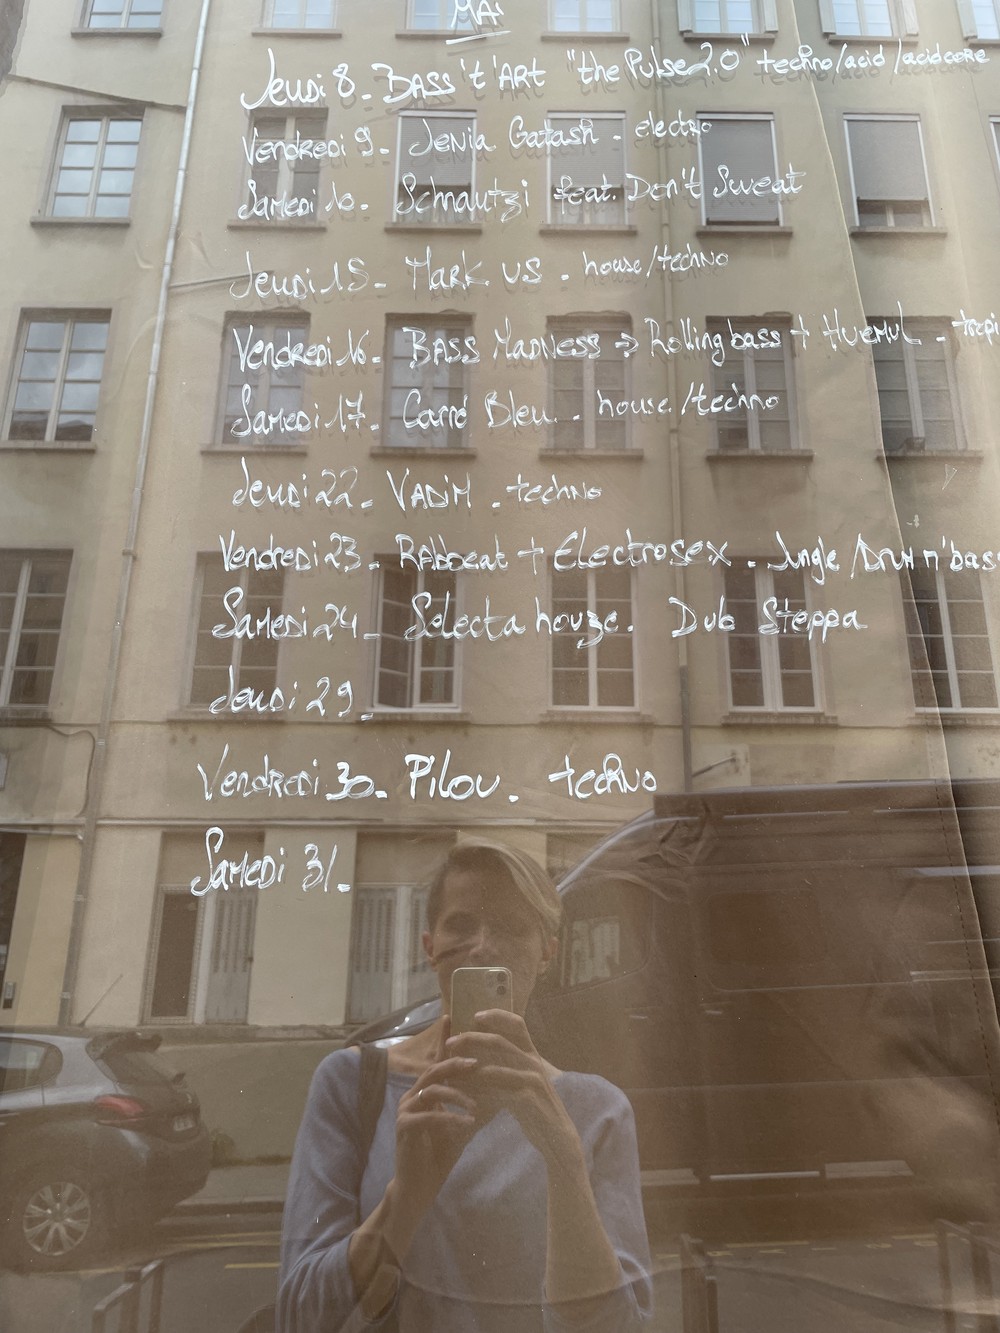 MAI
Jeudi 8_ BASS 't' ART "the Pulse 2.0" techno/acid/acidcore
Vendredi 9_ Jenia Gatash - electro
Samedi 10. Schnautzi feat. Don't Sweat
Jeudi 15_ Mark US. house/techno
Vendredi 16_ BASS MADNESS → Rolling bass + HUEMUL -
Samedi 17_ Carré Bleu. house/techno
Jeudi 22_ VADIM. techno
Vendredi 23_ RAbbeat + Electrosex. Jngle/Drum n'bass
Samedi 24_ Selecta houze. Dub Steppa
Jeudi 29_
Vendredi 30_ Pilou. techno
Samedi 31_